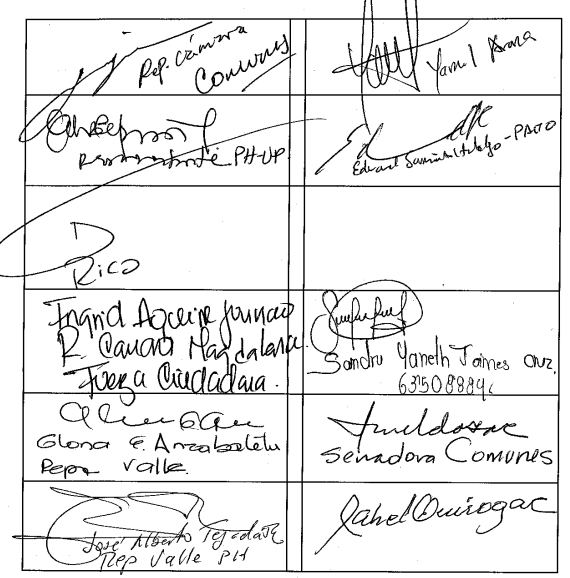 Rep. Cámara
Comunes
Yamil Arana
PH-UP
Eduard Sarmiento Hidalgo - PACTO
Rico
Ingrid Aguirre Juvinao
R. Cámara Magdalena.
Fuerza Ciudadana.
Sandra Yaneth Jaimes Cruz.
Gloria E. Arizabaleta
Repr Valle.
Imelda Daza
Senadora Comunes
José Alberto Tejada
Rep Valle PH
Jahel Quiroga C